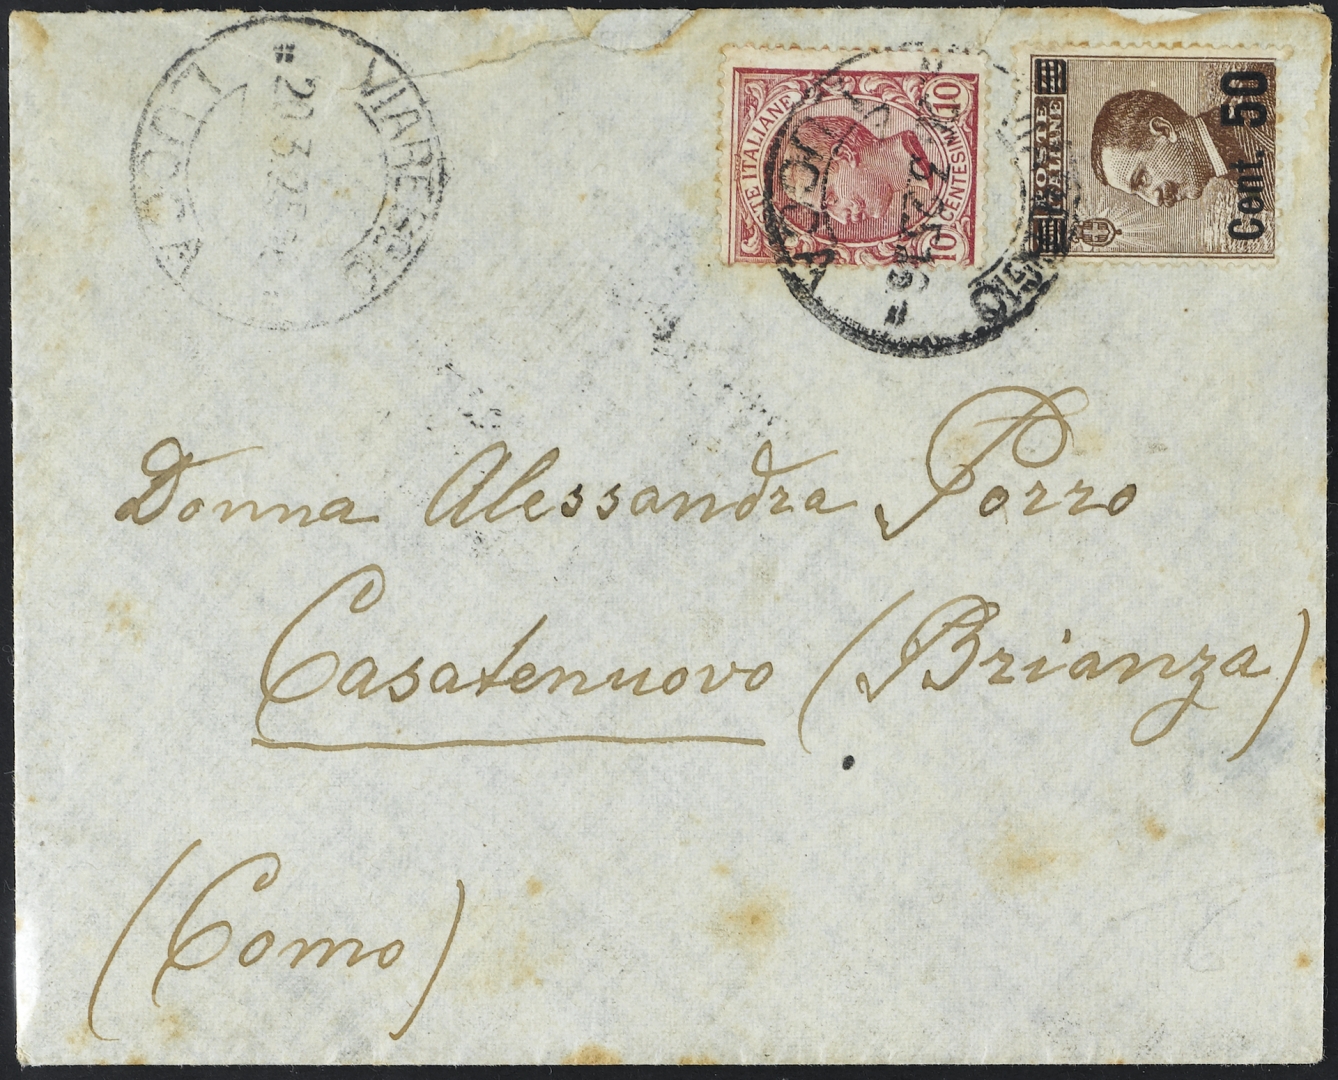 VIAREGGIO
LUCCA
20.3.25
POSTE ITALIANE
10 CENTESIMI 10
LUCCA
3.25
POSTE
ITALIANE
Cent. 50
Donna Alessandra Porro
Casatenuovo (Brianza)
(Como)